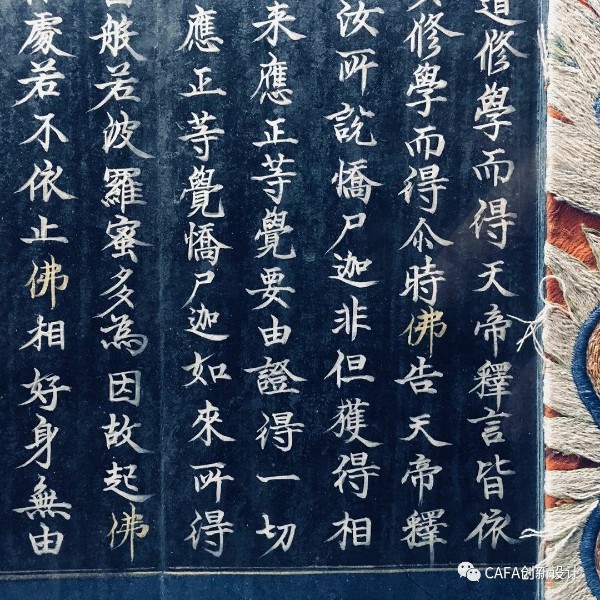 道修學而得天帝釋言皆依
修學而得尒時佛告天帝釋
汝所說憍尸迦非但獲得相
来應正等覺要由證得一切
應正等覺憍尸迦如來所得
般若波羅蜜多為因故起佛
處若不依止佛相好身無由
CAFA创新设计